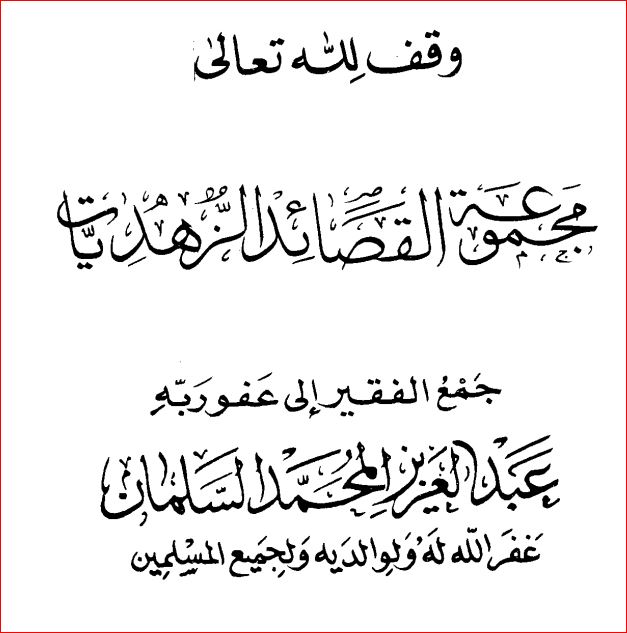 وقف لله تعالى
مجموعة القصائد الزهديات
جمع الفقير إلى عفو ربه
عبد العزيز المحمد السلمان
غفر الله له ولوالديه ولجميع المسلمين